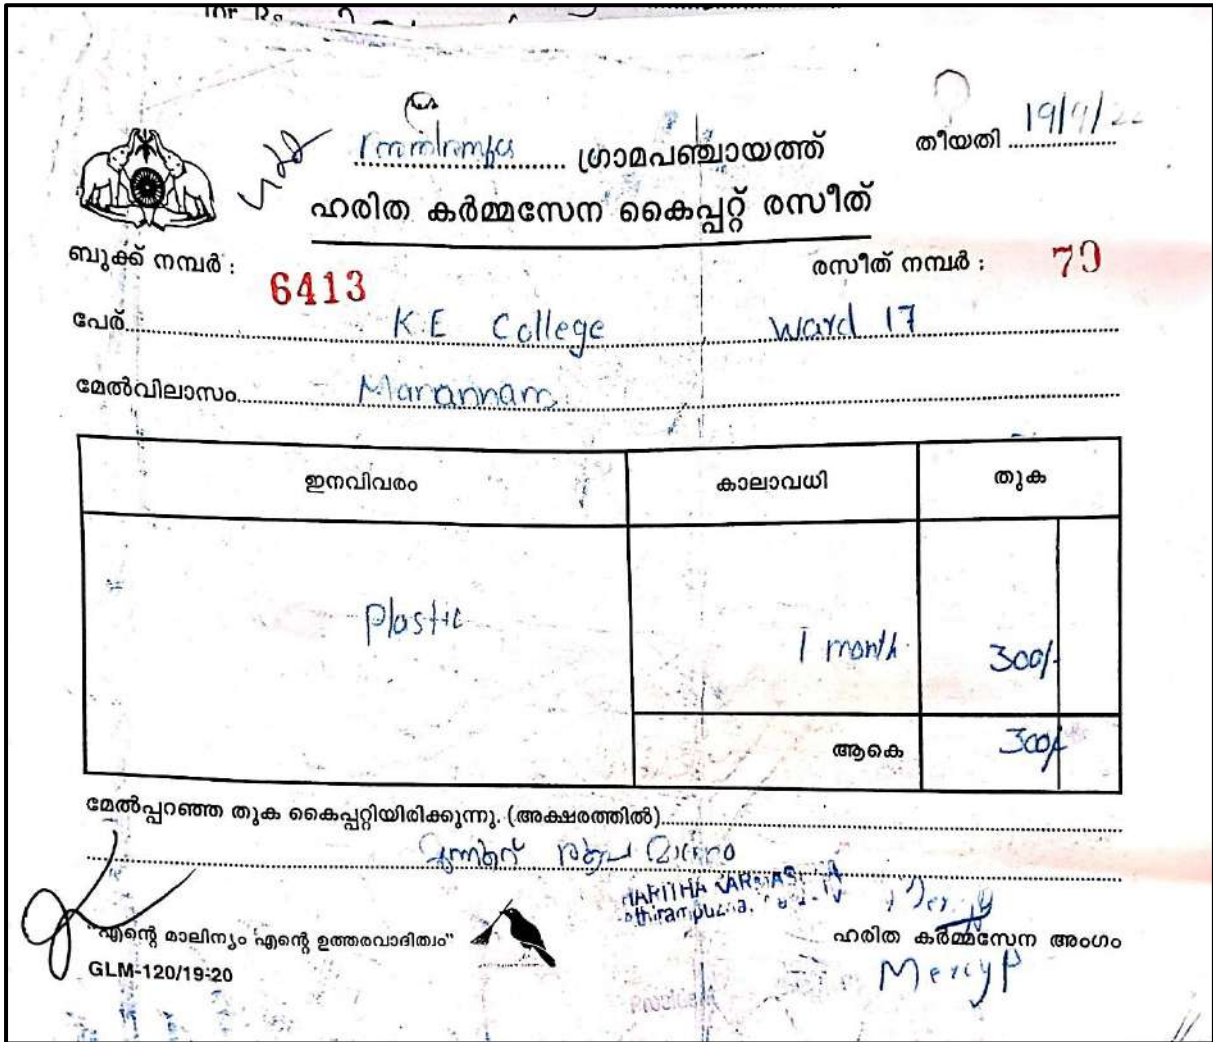 ഗ്രാമപഞ്ചായത്ത്
തീയതി 19/9/22
ഹരിത കർമ്മസേന കൈപ്പറ്റ് രസീത്
ബുക്ക് നമ്പർ : 6413
രസീത് നമ്പർ : 79
പേര് K.E College Ward 17
മേൽവിലാസം Manannam
ഇനവിവരം കാലാവധി തുക
Plastic 1 month 300/-
ആകെ 300/-
മേൽപ്പറഞ്ഞ തുക കൈപ്പറ്റിയിരിക്കുന്നു. (അക്ഷരത്തിൽ)
മുന്നൂറ് രൂപ മാത്രം
HARITHA KARMASENA
"എന്റെ മാലിന്യം എന്റെ ഉത്തരവാദിത്വം"
ഹരിത കർമ്മസേന അംഗം
GLM-120/19-20
Mercy P